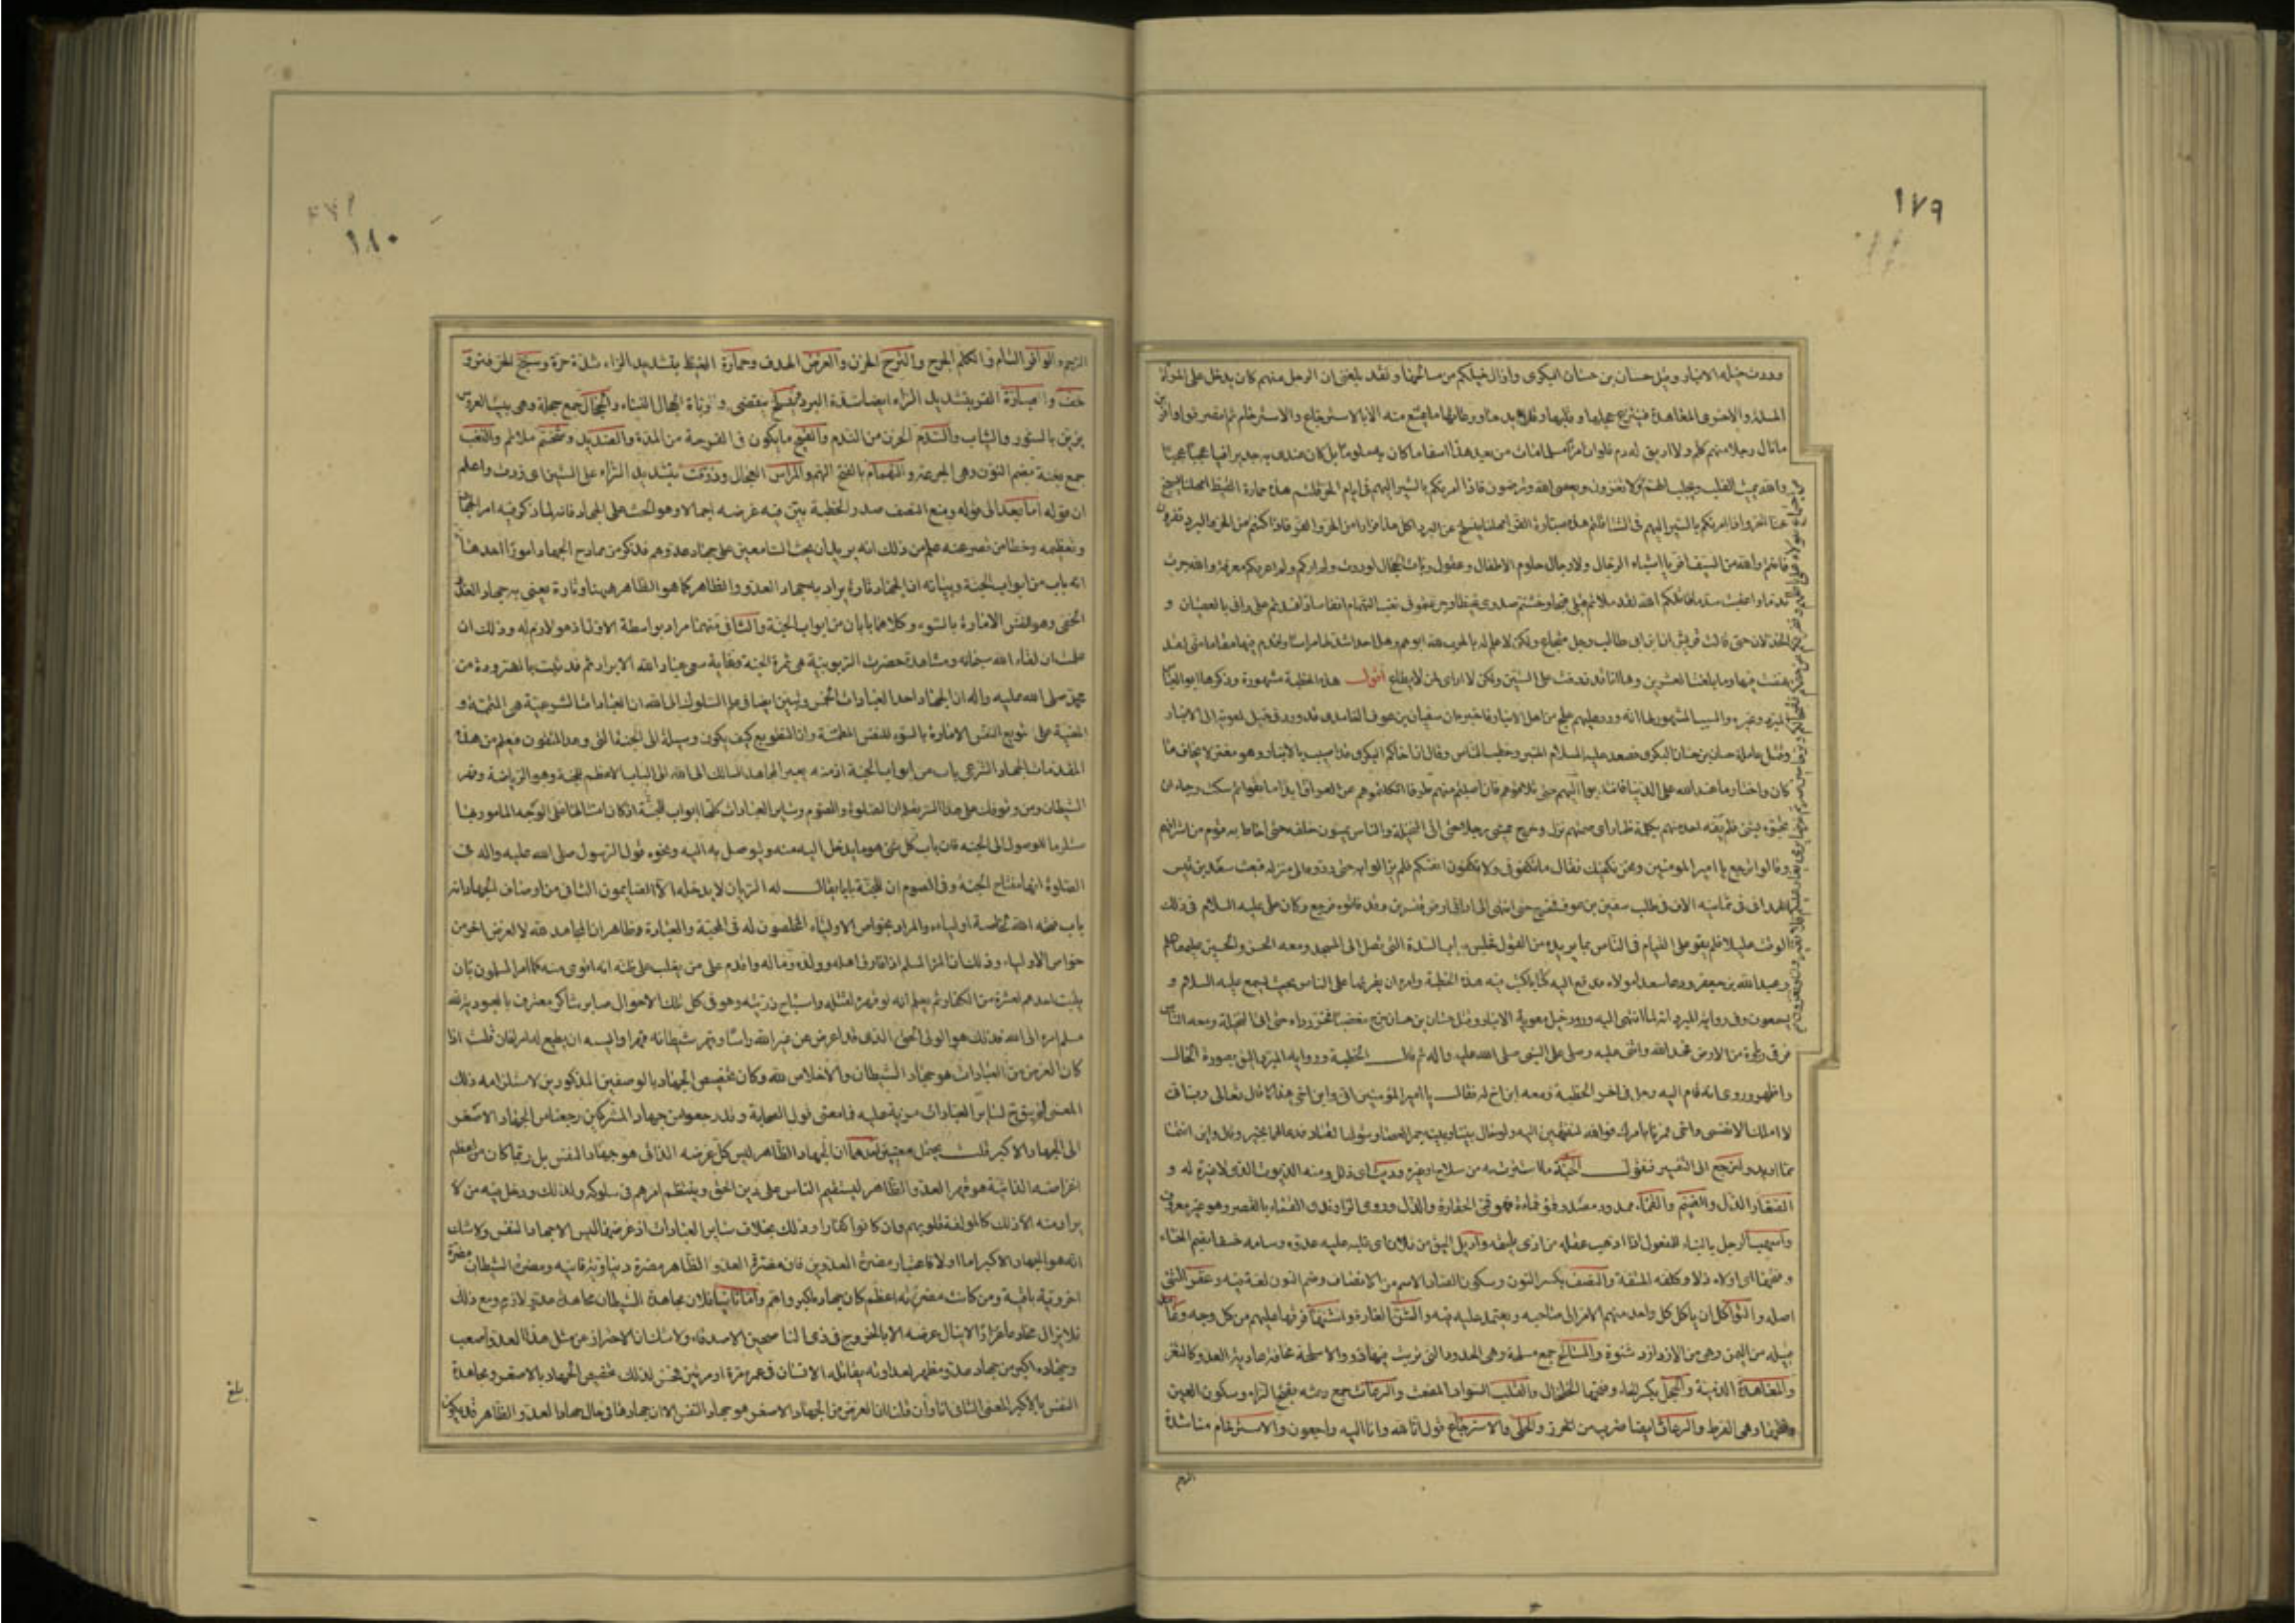 ١٧٩
وردت خيله الانبار وقتل حسان بن حسان البكرى وازال خيلكم عن مسالحها ولقد بلغنى ان الرجل منهم كان يدخل على المرأة
المسلمة والاخرى المعاهدة فينتزع حجلها وقلبها وقلائدها ورعاثها ما تمتنع منه الا بالاسترجاع والاسترحام ثم انصرفوا وافرين
ما نال رجلا منهم كلم ولا اريق له دم فلو ان امرأ مسلما مات من بعد هذا اسفا ما كان به ملوما بل كان عندى به جديرا فيا عجبا عجبا
والله يميت القلب ويجلب الهم
ولا تغزون ويعصى الله وترضون فاذا امرتكم بالسير اليهم فى ايام الحر قلتم هذه حمارة القيظ امهلنا يسبخ
عنا الحر واذا امرتكم بالسير اليهم فى الشتاء قلتم هذه صبارة القر امهلنا ينسلخ عنا البرد كل هذا فرارا من الحر والقر فاذا كنتم من الحر والبرد تفرون
فانتم والله من السيف افر يا اشباه الرجال ولا رجال حلوم الاطفال وعقول ربات الحجال لوددت انى لم اركم ولم اعرفكم معرفة والله جرت
ندما واعقبت سدما قاتلكم الله لقد ملأتم قلبى قيحا وشحنتم صدرى غيظا وجرعتمونى نغب التهمام انفاسا وافسدتم على رأى بالعصيان و
الخذلان حتى قالت قريش ان ابن ابى طالب رجل شجاع ولكن لا علم له بالحرب لله ابوهم وهل احد اشد لها مراسا واقدم فيها مقاما منى لقد
نهضت فيها وما بلغت العشرين وها انا قد ذرفت على الستين ولكن لا رأى لمن لا يطاع اقول هذه الخطبة مشهورة وذكرها ابو العباس
المبرد وغيره والسبب المشهور لها انه ورد عليهم علج من اهل الانبار فاخبره ان سفيان بن عوف الغامدى قد ورد فى خيل لمعوية الى الانبار
وقتل عامله حسان بن حسان البكرى فصعد عليه السلام المنبر وخطب الناس وقال ان اخاكم البكرى قد اصيب بالانبار وهو مغتر لا يخاف ما
كان واختار ما عند الله على الدنيا فانتدبوا اليهم حتى تلاقوهم فان اصبتم منهم طرفا انكلتموهم عن العراق ابدا ما بقوا ثم سكت رجاء ان
يجيبوه بشئ فلم يفه احد منهم بكلمة فلما رأى صمتهم نزل وخرج يمشى راجلا حتى اتى النخيلة والناس يمشون خلفه حتى احاط به قوم من اشرافهم
وقالوا ارجع يا امير المومنين ونحن نكفيك فقال ما تكفونى ولا تكفون انفسكم فلم يزالوا به حتى ردوه الى منزله فبعث سعيد بن قيس
الهمدانى فى ثمانية الاف فى طلب سفين بن عوف فخرج حتى انتهى الى ادانى ارض قنسرين وقد فاتوه فرجع وكان على عليه السلام فى ذلك
الوقت عليلا فلم يقو على القيام فى الناس بما يريده من القول فجلس بباب السدة التى تصل الى المسجد ومعه الحسن والحسين عليهما السلم
وعبد الله بن جعفر ودعا سعدا مولاه فدفع اليه كتابا كتب فيه هذه الخطبة وامره ان يقرأها على الناس بحيث يسمع عليه السلام و
يسمعون وفى رواية المبرد انه لما انتهى اليه ورود خيل معوية الانبار وقتل حسان بن حسان خرج مغضبا يجر رداءه حتى اتى النخيلة ومعه الناس
فرقى رباوة من الارض فحمد الله واثنى عليه وصلى على النبى صلى الله عليه واله ثم قال الخطبة ورواية المبرد اليق بصورة الحال
واظهر وروى انه قام اليه رجل فى اخر الخطبة ومعه ابن اخ له فقال يا امير المؤمنين انى وابن اخى هذا كما قال تعالى رب انى
لا املك الا نفسى واخى فمرنا بامرك فوالله لننتهين اليه ولو حال بيننا وبينه جمر الغضا وشوك القتاد فدعا لهما بخير وقال واين انتما
مما اريد ولنرجع الى التفسير فنقول الجنة ما استترت به من سلاح او غيره وديث اى ذلل ومنه الديوث الذى لا غيرة له و
الصغار الذل والضيم والقماء ممدود مصدر قمؤ قماءة فهو قمئ الحقارة والذل وروى الراوندى القماء بالقصر وهو غير معروف
واسهب الرجل بالبناء للمفعول اذا ذهب عقله من اذى يلحقه واديل الحق من فلان اى غلبه عليه عدوه وسامه خسفا بضم الخاء
وفتحها اى اولاه ذلا وكلفه المشقة والنصف بكسر النون وسكون الصاد الاسم من الانصاف وضم النون لغة فيه وعقر الشئ
اصله والتواكل ان يكل كل واحد منهم الامر الى صاحبه ويعتمد عليه فيه والشن الغارة وشنها فرقها عليهم من كل وجه وغامد
قبيلة من اليمن وهى من الازد ازد شنوة والمسالح جمع مسلحة وهى الحدود التى ترتب فيها ذوو الاسلحة مخافة عادية العدو كالثغر
والمعاهدة الذمية والحجل بكسر الحاء وفتحها الخلخال والقلب السوار المصمت والرعاث جمع رعثه بفتح الراء وسكون العين
وفتحها وهى القرط والرعاث ايضا ضرب من الخرز والحلى والاسترجاع قول انا لله وانا اليه راجعون والاسترحام مناشدة
الرحم
١٨٠
الرحم والوافر التام والكلم الجرح والترح الحزن والغرض الهدف وحمارة القيظ بتشديد الراء شدة حره وسبخ الحر فتر و
خف والصبارة القر بتشديد الراء ايضا شدة البرد وينسلخ ينقضى وربات الحجال النساء والحجال جمع حجلة وهى بيت العروس
يزين بالستور والثياب والسدم الحزن من الندم والقيح ما يكون فى القرحة من المدة والصديد وشحنتم ملاتم والنغب
جمع نغبة بضم النون وهى الجرعة والتهمام بالفتح الهم والمراس العلاج وذرفت بتشديد الراء على الستين اى زدت واعلم
ان قوله اما بعد الى قوله ومنع النصف صدر الخطبة يبين فيه غرضه اجمالا وهو الحث على الجهاد فانه لما ذكر فيه امر الجهاد
وتعظيمه وخطأ من قصر عنه علم من ذلك انه يريد ان يحث السامعين على جهاد عدوهم فذكر من ممادح الجهاد امورا احدها
انه باب من ابواب الجنة وبيانه ان الجهاد تارة يراد به جهاد العدو والظاهر كما هو الظاهر ههنا وتارة يعنى به جهاد العدو
الخفى وهو النفس الامارة بالسوء وكلاهما بابان من ابواب الجنة والثانى منهما مراد بواسطة الاول اذ هو لازم له وذلك ان
علمت ان لقاء الله سبحانه ومشاهدة حضرت الربوبية هى ثمرة الجنة وغاية سعى عباد الله الابرار ثم قد ثبت بالضرورة من
محمد صلى الله عليه واله ان الجهاد احد العبادات الخمس وتبين ايضا فى علم السلوك الى الله ان العبادات الشرعية هى المتممة و
المعينة على تطويع النفس الامارة بالسوء للنفس المطمئنة وان التطويع كيف يكون وسيلة الى الجنة التى وعد المتقون فيعلم من هذه
المقدمات ان الجهاد الشرعى باب من ابواب الجنة اذ منه يعبر المجاهد السالك الى الله الى الباب الاعظم للجنة وهو الرياضة وقهر
الشيطان ومن وقوفك على هذا السر يظهر ان الصلوة والصوم وسائر العبادات كلها ابواب للجنة اذ كان امتثالها على الوجه المامور بها
مستلزما للوصول الى الجنة فان باب كل شئ هو ما يدخل اليه منه ويوصل به اليه ونحوه قول الرسول صلى الله عليه واله فى
الصلوة انها مفتاح الجنة وفى الصوم ان للجنة بابا يقال له الريان لا يدخله الا الصايمون الثانى من اوصاف الجهاد انه
باب فتحه الله لخاصة اوليائه والمراد بخواص الاولياء المخلصون له فى المحبة والعبادة وظاهر ان المجاهد لله لا لغرض اخر من
خواص الاولياء وذلك ان المرء المسلم اذا فارق اهله وولده وماله واقدم على من يغلب على ظنه انه اقوى منه كما امر المسلمون بان
يثبت احدهم لعشرة من الكفار ثم يعلم انه لو قهره لقتله واستباح ذريته وهو فى كل تلك الاحوال صابر شاكر معترف بالعبودية لله
مسلم امره الى الله فذلك هو الولى الحق الذى قد اعرض عن غير الله رأسا وقهر شيطانه قهرا وايسه ان يطيع له امر فان قلت اذا
كان الغرض من العبادات هو جهاد الشيطان والاخلاص لله وكان تخصيص الجهاد بالوصفين المذكورين لاستلزامه ذلك
المعنى لم يبق ح لسائر العبادات مزية عليه فما معنى قول الصحابة وقد رجعوا من جهاد المشركين رجعنا من الجهاد الاصغر
الى الجهاد الاكبر قلت يحتمل معنيين احدهما ان الجهاد الظاهر ليس كل غرضه الذاتى هو جهاد النفس بل ربما كان من اعظم
اغراضه الذاتية هو قهر العدو الظاهر ليستقيم الناس على الدين الحق وينتظم امرهم فى سلوكه ولذلك ودخل فيه من لا
يراد منه الا ذلك كالمولفة قلوبهم وان كانوا كفارا وذلك بخلاف سائر العبادات اذ غرضها ليس الا جهاد النفس ولا شك
انه هو الجهاد الاكبر اما اولا فاعتبار مضرة العدوين فان مضرة العدو الظاهر مضرة دنياوية فانية ومضرة الشيطان مضرة
اخروية باقية ومن كانت مضرته اعظم كان جهاده اكبر واهم واما ثانيا فلان مجاهدة الشيطان مجاهدة عدو لازم ومع ذلك
فلا يزال مخادعا غرارا لا ينال غرضه الا بالخروج فى زى الناصحين الاصدقاء ولا شك ان الاحتراز من مثل هذا العدو اصعب
وجهاده اكبر من جهاد عدو مظهر لعداوته يقاتله الانسان فى عمره مرة او مرتين فحسن لذلك تخصيص الجهاد بالاصغر ومجاهدة
النفس بالاكبر المعنى الثانى انا وان قلنا ان الغرض من الجهاد الاصغر هو جهاد النفس الا ان جهادها فى حال جهاد العدو الظاهر قد يكون
بلغ